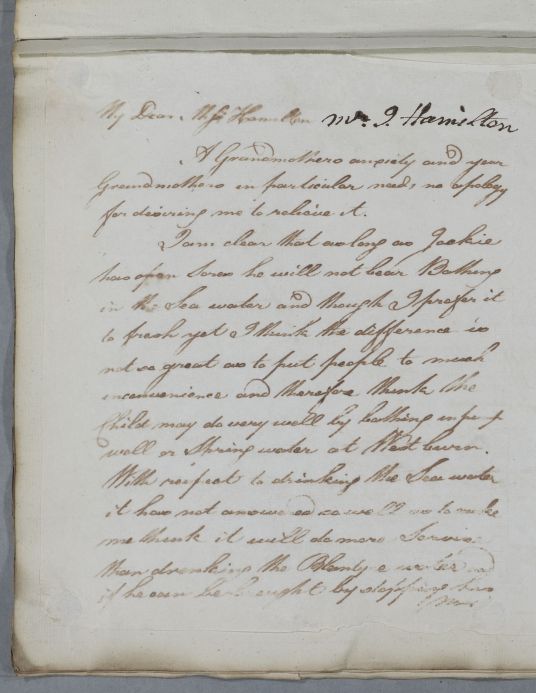 My Dear Miss Hamilton Mrs. J. Hamilton
A Grandmothers anxiety and your
Grandmothers in particular needs no apology
for desiring me to relieve it.
I am clear that as long as Jockie
has open Sores he will not bear Bathing
in the Sea water and though I prefer it
to fresh yet I think the difference is
not so great as to put people to much
inconvenience and therefore think the
Child may do very well by bathing in
well or Spring water at Westburn.
With respect to drinking the Sea water
it has not answered so well as to make
me think it will do more Service
than drinking the water and
if he can be brought by sipping two